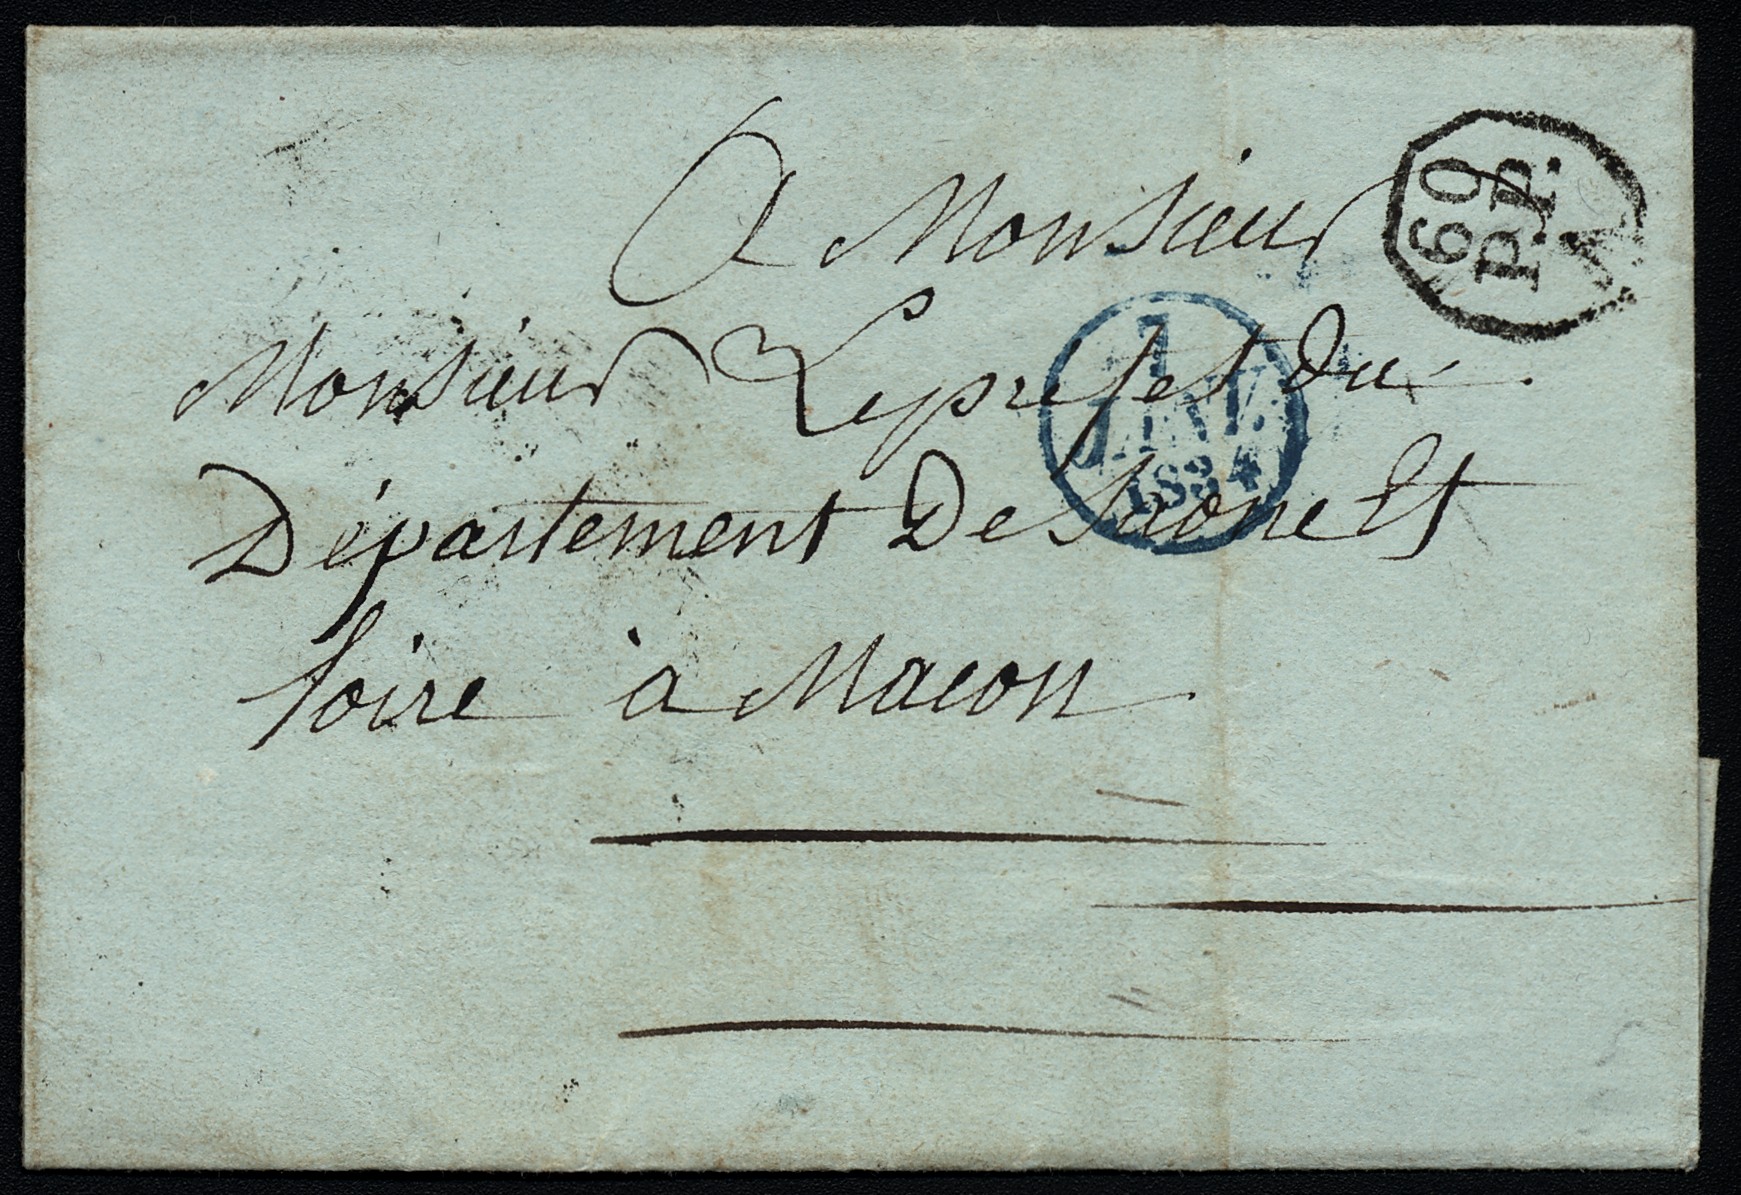 A Monsieur
Monsieur Le prefet du
Département De Saone Et
loire à Macon
7
JANV.
1834
60
P.P.